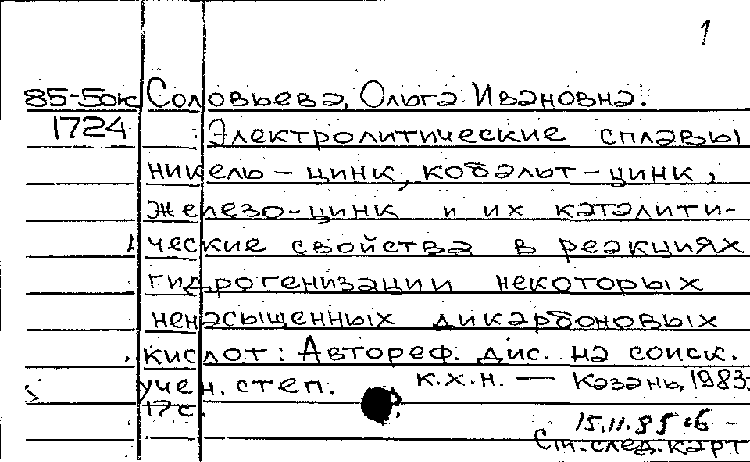 1
85-5ок Соловьева, Ольга Ивановна.
1724 Электролитические сплавы
никель - цинк, кобальт - цинк,
железо-цинк и их каталити-
ческие свойства в реакциях
гидрогенизации некоторых
ненасыщенных дикарбоновых
кислот: Автореф. дис. на соиск.
учен. степ. к.х.н. — Казань, 1983.
17 с.
15.11.85
См. след. карт